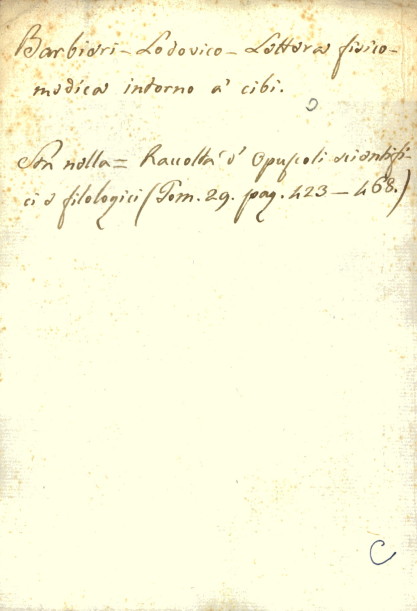 Barbieri - Lodovico - Lettera fisico-
medica intorno a' cibi.
Sta nella = Raccolta d' Opuscoli scientifi
ci e filologici (Tom. 29. pag. 423 - 468.)
C